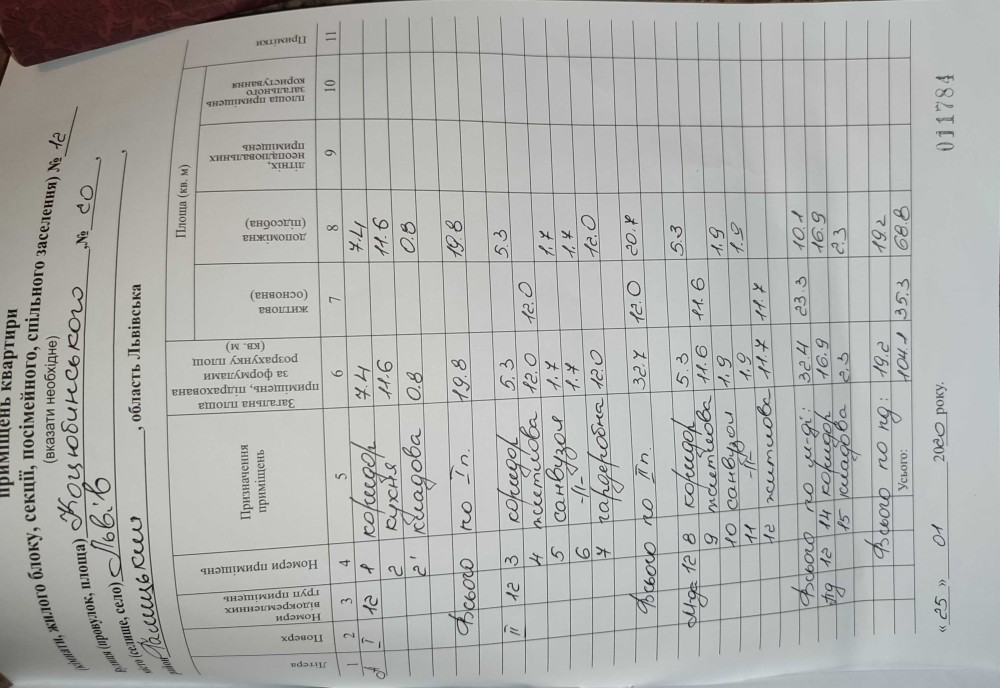 приміщень квартири
кімнати, жилого блоку, секції, посімейного, спільного заселення) № 12
(вказати необхідне)
вулиця (провулок, площа) Коцюбинського, № 20,
місто (селище, село) Львів,
район Галицький, область Львівська
Літера
Поверх
Номери відокремлених груп приміщень
Номери приміщень
Призначення приміщень
Загальна площа приміщень, підрахована за формулами розрахунку площ (кв. м)
Площа (кв. м)
житлова (основна)
допоміжна (підсобна)
літніх, неопалювальних приміщень
площа приміщень загального користування
Примітки
1 2 3 4 5 6 7 8 9 10 11
А I 12 1 коридор 7.4 7.4
2 кухня 11.6 11.6
2' кладова 0.8 0.8
Всього по I п. 19.8 19.8
II 12 3 коридор 5.3 5.3
4 житлова 12.0 12.0
5 санвузол 1.7 1.7
6 -//- 1.7 1.7
7 гардеробна 12.0 12.0
Всього по II п. 32.7 12.0 20.7
Мда 12 8 коридор 5.3 5.3
9 житлова 11.6 11.6
10 санвузол 1.9 1.9
11 -//- 1.9 1.9
12 житлова 11.7 11.7
Всього по м-ді: 32.4 23.3 10.1
Пд 12 14 коридор 16.9 16.9
15 кладова 2.3 2.3
Всього по пд: 19.2 19.2
Усього: 104.1 35.3 68.8
« 25 » 01 2020 року.
011784